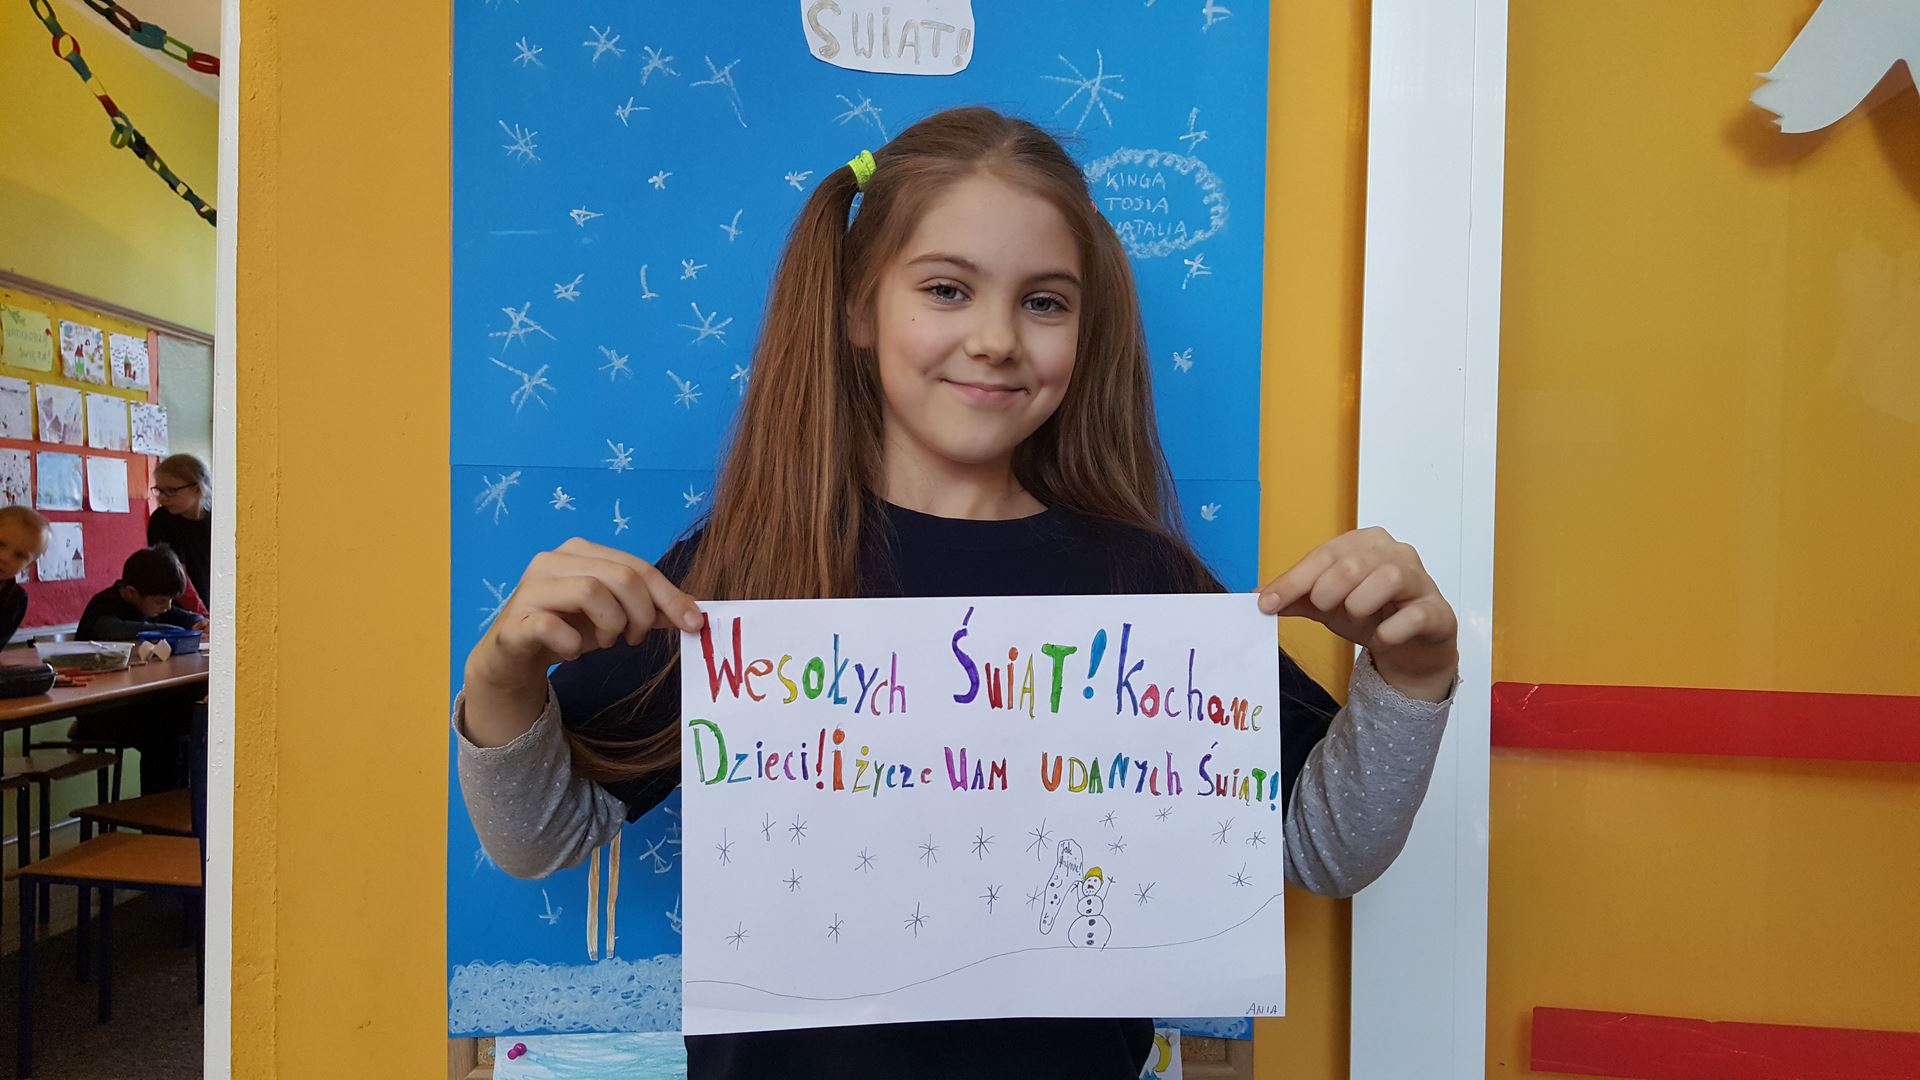 ŚWIĄT!
KINGA
TOSIA
NATALIA
Wesołych Świąt! Kochane
Dzieci! i życze WAM UDANYch Świąt!
ANIA